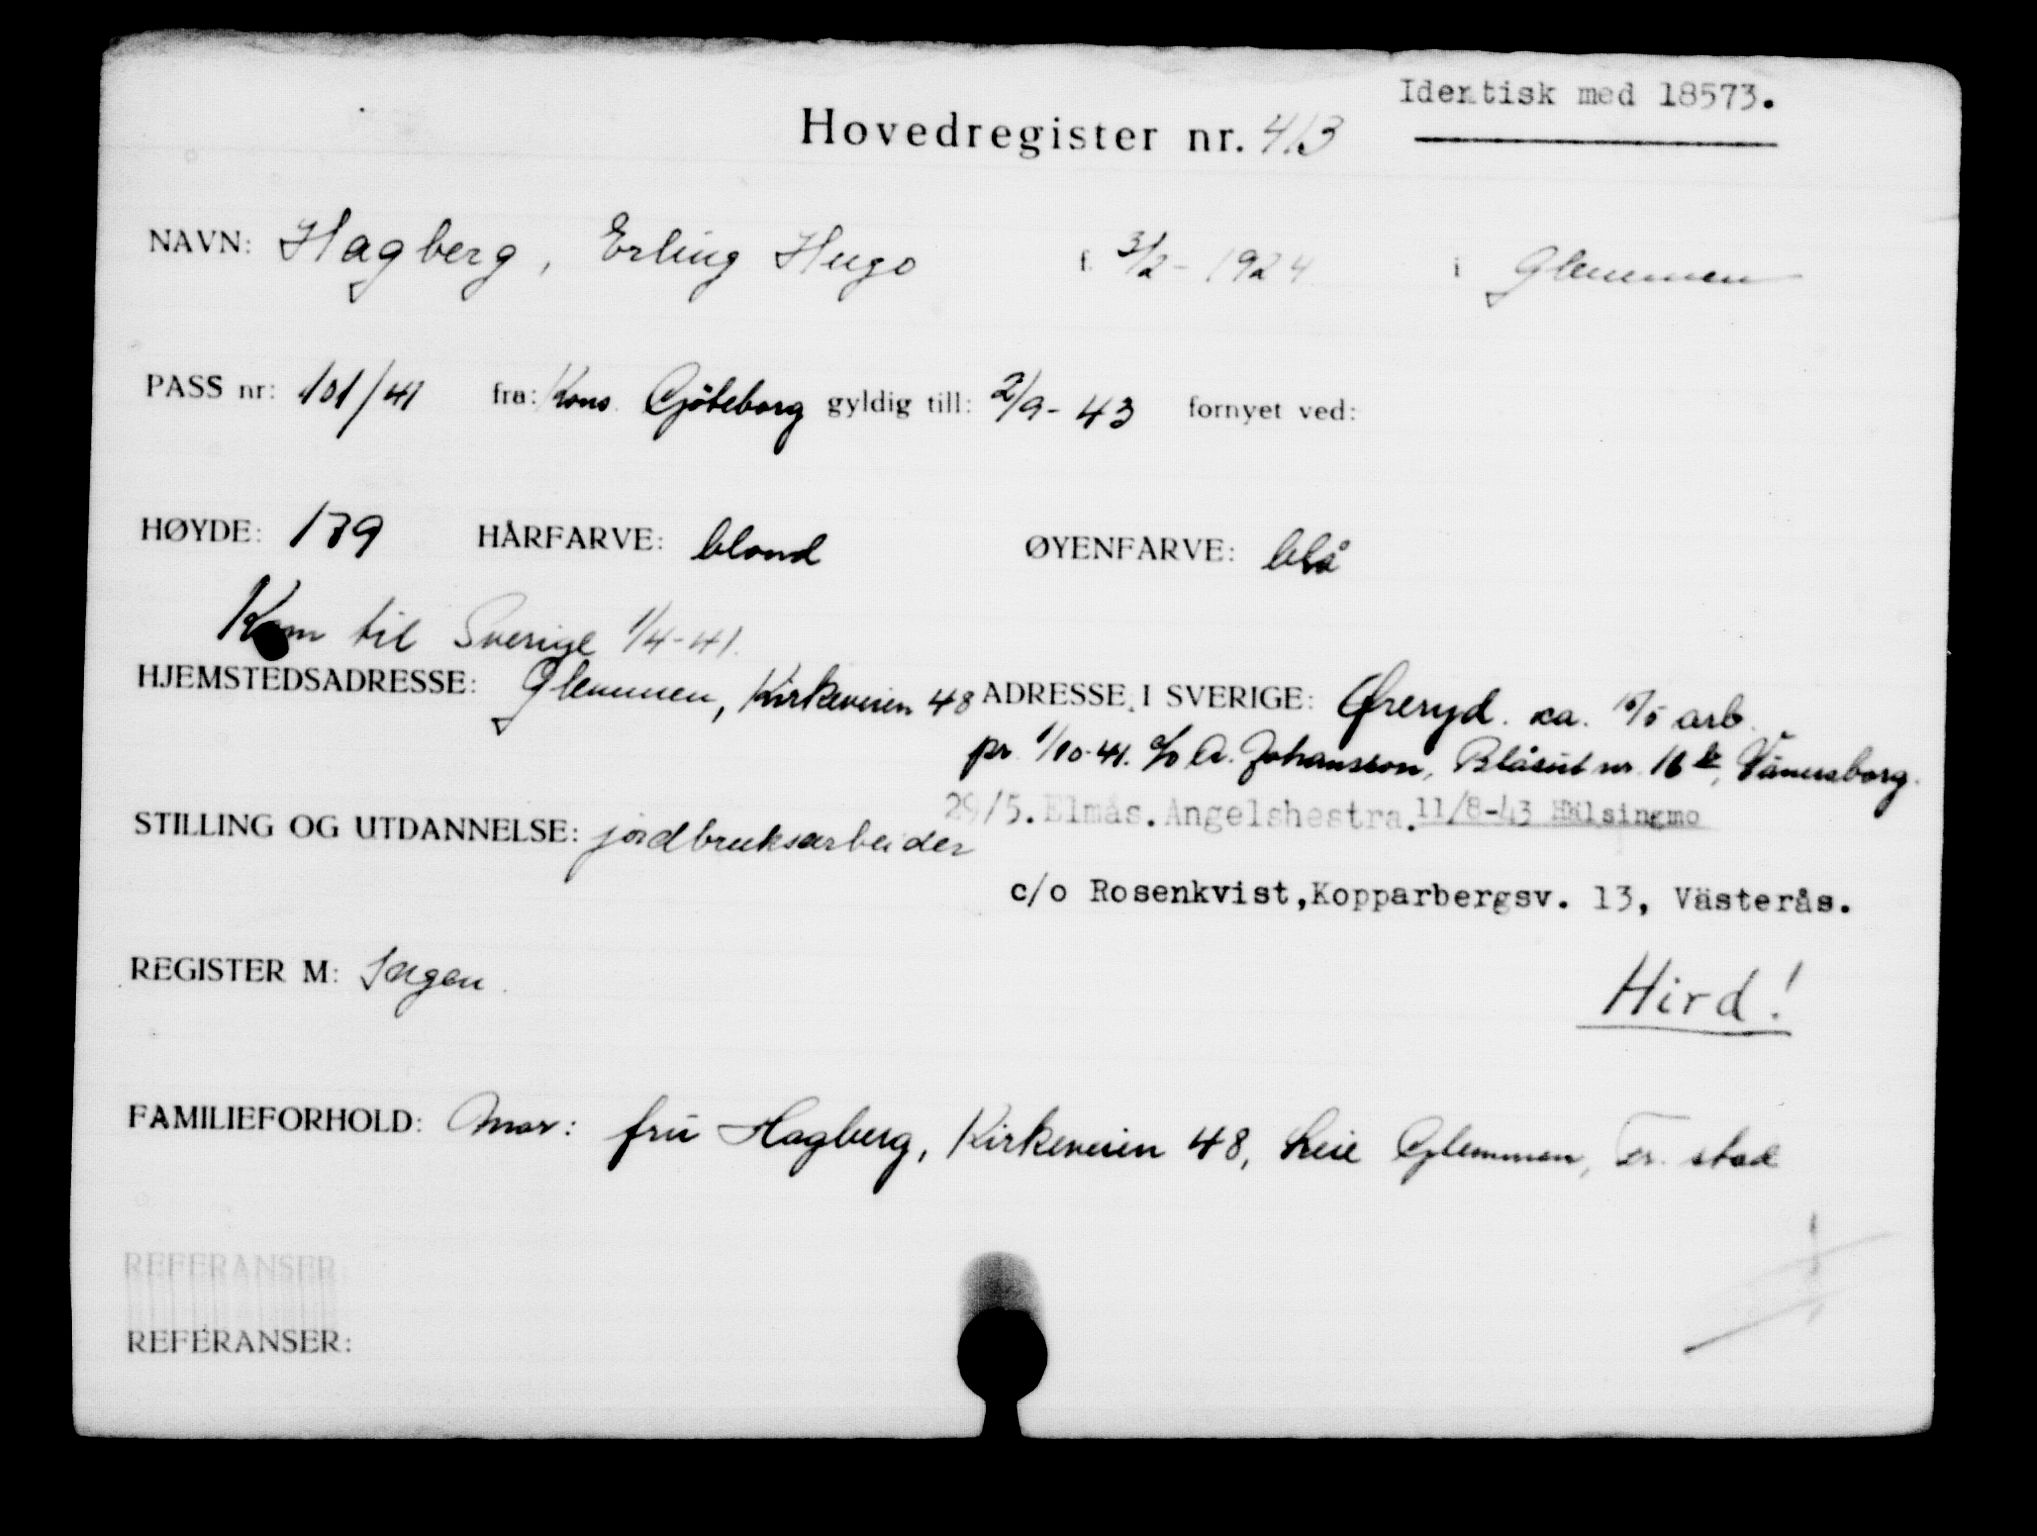 Identisk med 18573.
Hovedregister nr. 413
NAVN: Hagberg, Erling Hugo f. 3/2 - 1924 i Glemmen
PASS nr: 101/41 fra: Kons. Göteborg gyldig till: 2/9 - 43 fornyet ved:
HØYDE: 179 HÅRFARVE: blond ØYENFARVE: blå
Kom til Sverige 1/4-41.
HJEMSTEDSADRESSE: Glemmen, Kirkeveien 48 ADRESSE I SVERIGE: Øreryd. ca. 15/5 arb.
pr. 1/10-41. c/o A. Johansson, Blåsut nr. 16 b, Vänersborg.
29/5. Elmås. Angelshestra. 11/8-43 Hälsingmo
STILLING OG UTDANNELSE: jordbruksarbeider
c/o Rosenkvist, Kopparbergsv. 13, Västerås.
REGISTER M: Ingen.
Hird!
FAMILIEFORHOLD: Mor: fru Hagberg, Kirkeveien 48, Leie Glemmen, Fr. stad
REFERANSER
REFERANSER: